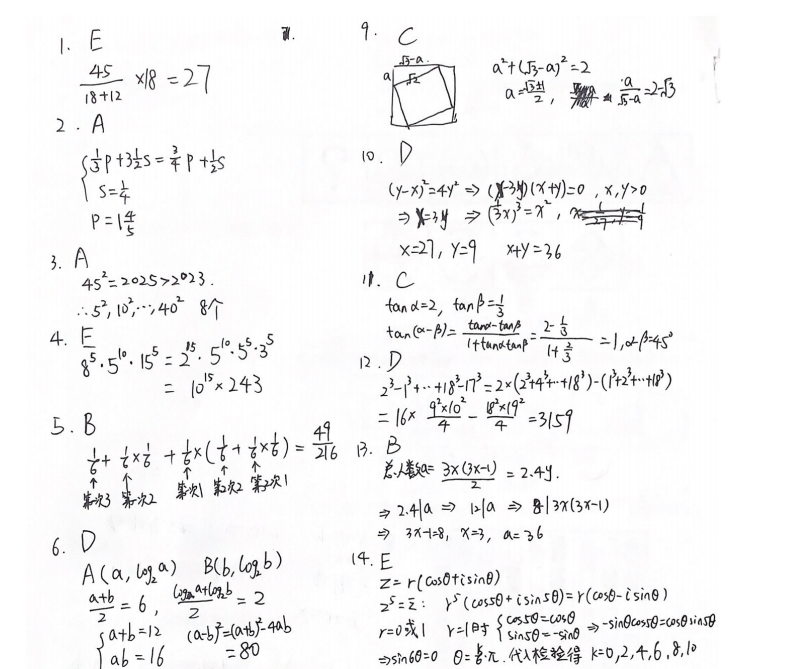 1. E
45/(18+12) ×18 = 27
2. A
{ 1/3 P + 3 1/2 S = 3/4 P + 1/2 S
S = 1/4
P = 1 4/5
3. A
45² = 2025 > 2023.
∴ 5², 10², ⋯, 40² 8个
4. E
8⁵ · 5¹⁰ · 15⁵ = 2¹⁵ · 5¹⁰ · 5⁵ · 3⁵
= 10¹⁵ × 243
5. B
1/6 + 1/6 × 1/6 + 1/6 × (1/6 + 1/6 × 1/6) = 49/216
↑ ↑ ↑ ↑ ↑
第一次3 第一次2 第一次1 第2次2 第二次1
6. D
A(a, log₂a) B(b, log₂b)
(a+b)/2 = 6, (log₂a + log₂b)/2 = 2
{ a+b = 12 (a-b)² = (a+b)² - 4ab
ab = 16 = 80
9. C
√3-a
a √2
a² + (√3-a)² = 2
a = (√3±1)/2, a/(√3-a) = 2-√3
10. D
(y-x)² = 4y² ⇒ (x-3y)(x+y) = 0, x, y > 0
⇒ x = 3y ⇒ (1/3 x)³ = x²,
x = 27, y = 9 x+y = 36
11. C
tanα = 2, tanβ = 1/3
tan(α-β) = (tanα - tanβ)/(1 + tanαtanβ) = (2 - 1/3)/(1 + 2/3) = 1, α-β = 45°
12. D
2³-1³+⋯+18³-17³ = 2×(2³+4³+⋯+18³)-(1³+2³+⋯+18³)
= 16 × (9²×10²)/4 - (18²×19²)/4 = 3159
13. B
总人数a = 3x(3x-1)/2 = 2.4y.
⇒ 2.4|a ⇒ 12|a ⇒ 8|3x(3x-1)
⇒ 3x-1=8, x=3, a=36
14. E
z = r(cosθ + isinθ)
z⁵ = z̄: r⁵(cos5θ + isin5θ) = r(cosθ - isinθ)
r=0或1 r=1时 { cos5θ = cosθ sin5θ = -sinθ ⇒ -sinθcos5θ = cosθsin5θ
⇒ sin6θ = 0 θ = k/6 π. 代入检验得 k=0,2,4,6,8,10